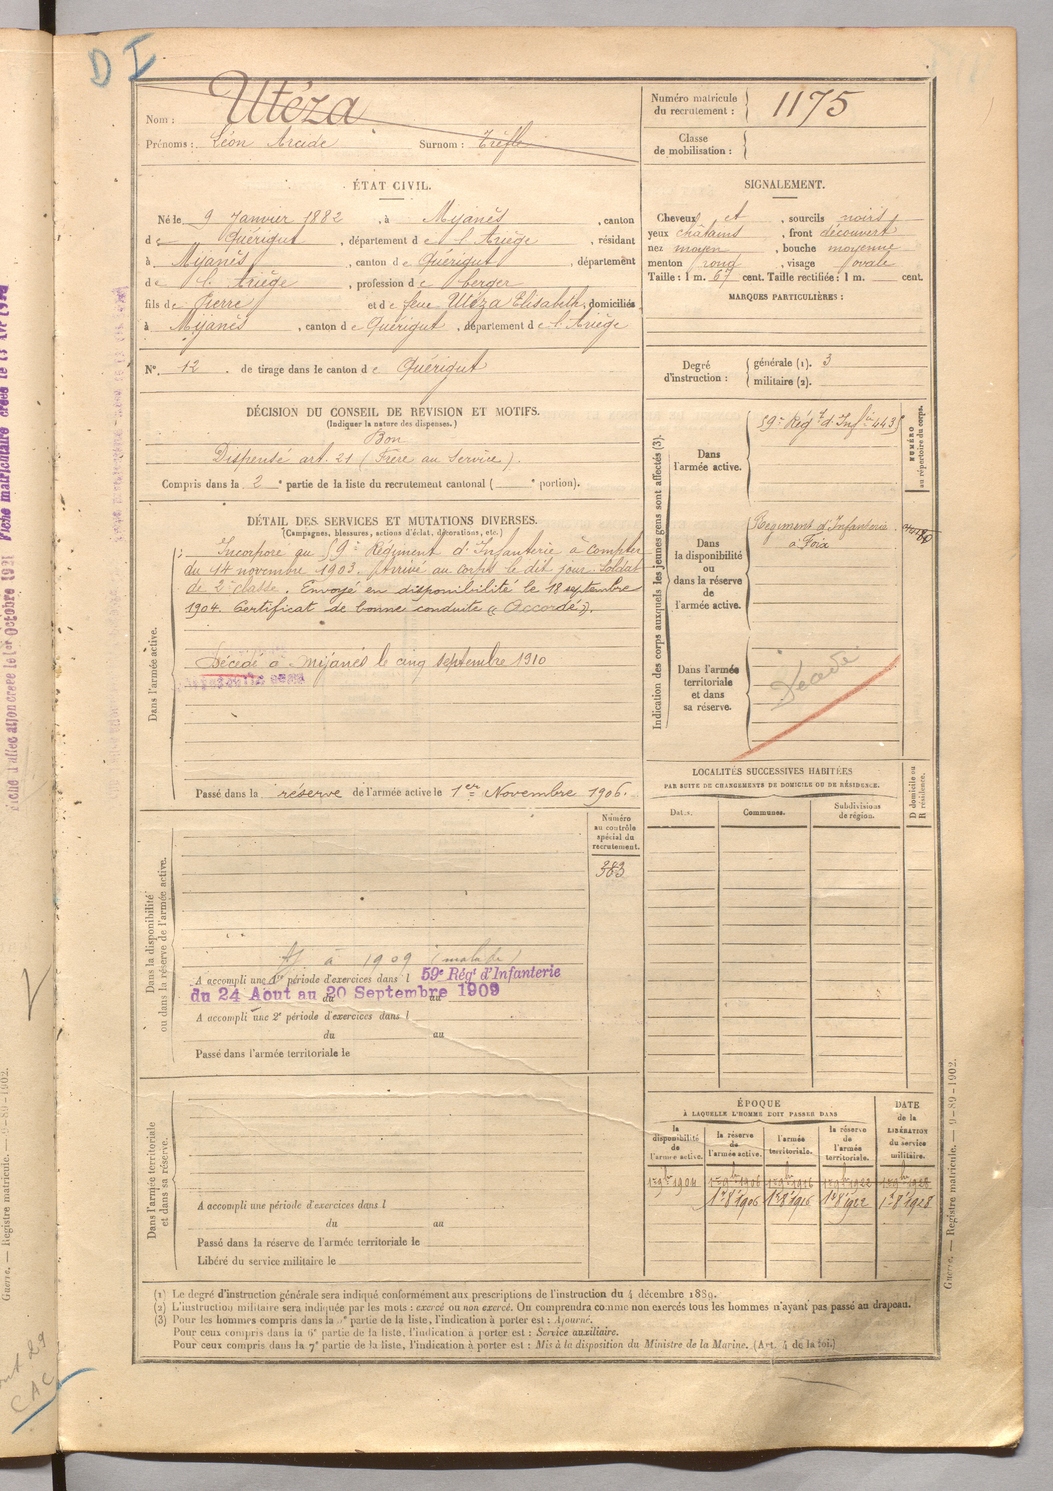 D I
Nom : Utéza
Prénoms : Léon Arcade Surnom : Trèfle
Numéro matricule du recrutement : 1175
Classe de mobilisation :
ÉTAT CIVIL.
Né le 9 Janvier 1882, à Mijanès, canton
de Quérigut, département de l'Ariège, résidant
à Mijanès, canton de Quérigut, département
de l'Ariège, profession de berger
fils de Pierre et de feue Utéza Elisabeth, domiciliés
à Mijanès, canton de Quérigut, département de l'Ariège
N°. 12. de tirage dans le canton de Quérigut
SIGNALEMENT.
Cheveux et, sourcils noirs
yeux châtains, front découvert
nez moyen, bouche moyenne
menton rond, visage ovale
Taille : 1 m. 67 cent. Taille rectifiée : 1 m. cent.
MARQUES PARTICULIÈRES :
Degré d'instruction : générale (1). 3
militaire (2).
DÉCISION DU CONSEIL DE REVISION ET MOTIFS.
(Indiquer la nature des dispenses.)
Bon
Dispensé art. 21 (Frère au Service).
Compris dans la 2e partie de la liste du recrutement cantonal ( e portion).
DÉTAIL DES SERVICES ET MUTATIONS DIVERSES.
(Campagnes, blessures, actions d'éclat, décorations, etc.)
Dans l'armée active.
Incorporé au 59e Régiment d'Infanterie à compter
du 14 novembre 1903. Arrivé au corps le dit jour. Soldat
de 2e classe. Envoyé en disponibilité le 18 septembre
1904. Certificat de bonne conduite « Accordé ».
Décédé à Mijanès le cinq septembre 1910
Passé dans la réserve de l'armée active le 1er Novembre 1906.
Indication des corps auxquels les jeunes gens sont affectés (3).
NUMÉRO au répertoire du corps.
Dans l'armée active.
59e Régt d'Infie 4435
Dans la disponibilité ou dans la réserve de l'armée active.
Régiment d'Infanterie
à Foix
Dans l'armée territoriale et dans sa réserve.
LOCALITÉS SUCCESSIVES HABITÉES
PAR SUITE DE CHANGEMENTS DE DOMICILE OU DE RÉSIDENCE.
Dates. Communes. Subdivisions de région. D domicile ou R résidence.
Dans la disponibilité ou dans la réserve de l'armée active.
Numéro au contrôle spécial du recrutement.
383
à 1909 (malade)
A accompli une 1re période d'exercices dans l 59e Régt d'Infanterie
du 24 Aout au 20 Septembre 1909
A accompli une 2e période d'exercices dans l
du au
Passé dans l'armée territoriale le
Dans l'armée territoriale et dans sa réserve.
A accompli une période d'exercices dans l
du au
Passé dans la réserve de l'armée territoriale le
Libéré du service militaire le
ÉPOQUE
À LAQUELLE L'HOMME DOIT PASSER DANS
la disponibilité de l'armée active. la réserve de l'armée active. l'armée territoriale. la réserve de l'armée territoriale. DATE de la LIBÉRATION du service militaire.
1er 9bre 1904 1er 9bre 1906 1er 9bre 1916 1er 9bre 1922 1er 9bre 1928
1er 8e 1906 1er 8e 1916 1er 8e 1922 1er 8e 1928
(1) Le degré d'instruction générale sera indiqué conformément aux prescriptions de l'instruction du 4 décembre 1889.
(2) L'instruction militaire sera indiquée par les mots : exercé ou non exercé. On comprendra comme non exercés tous les hommes n'ayant pas passé au drapeau.
(3) Pour les hommes compris dans la 5e partie de la liste, l'indication à porter est : Ajourné.
Pour ceux compris dans la 6e partie de la liste, l'indication à porter est : Service auxiliaire.
Pour ceux compris dans la 7e partie de la liste, l'indication à porter est : Mis à la disposition du Ministre de la Marine. (Art. 4 de la loi.)
Guerre. — Registre matricule. — 9-89-1902.